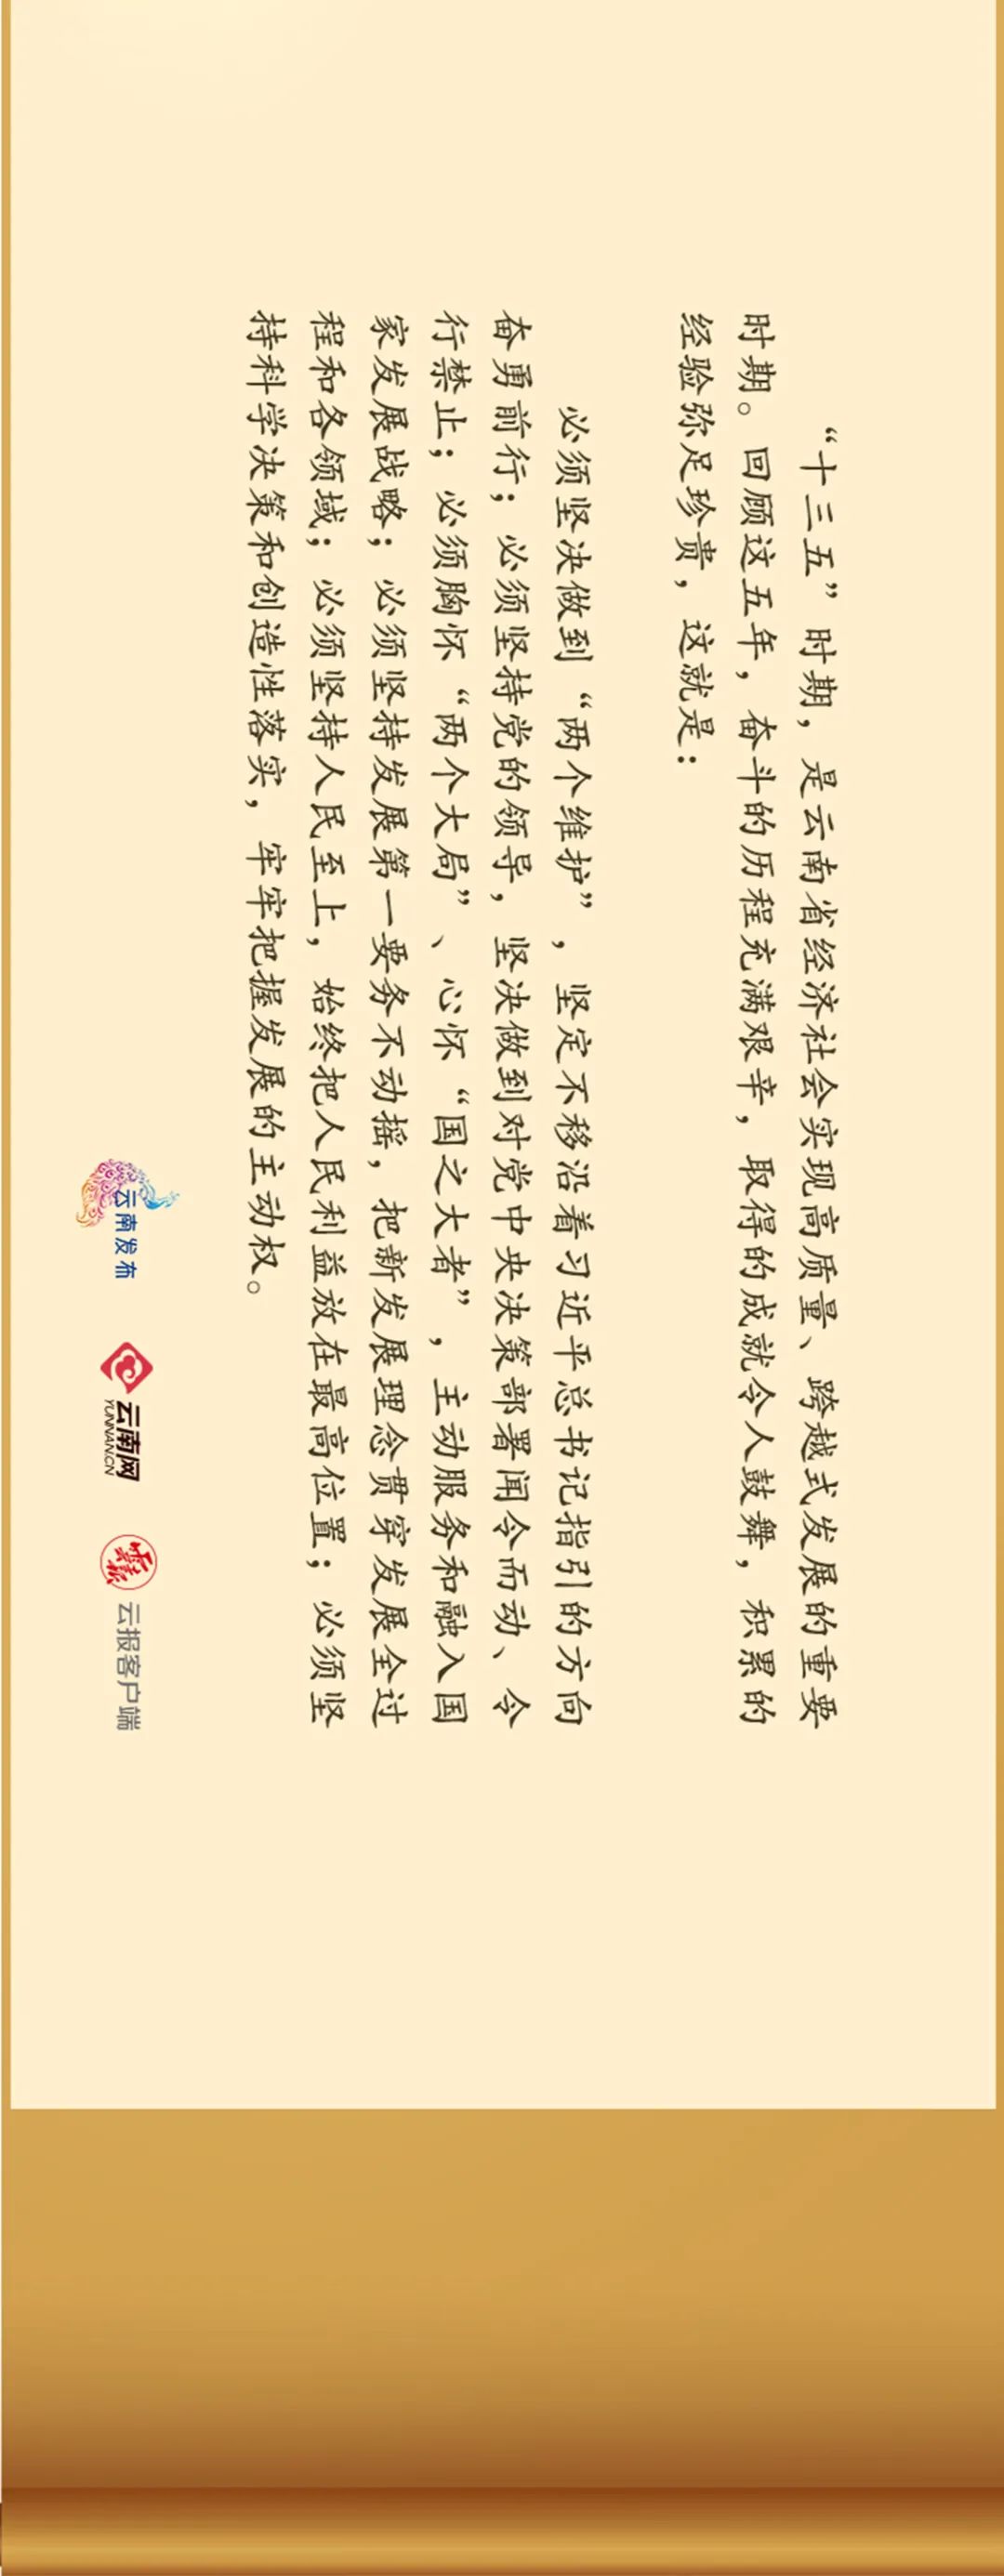 “十三五”时期，是云南省经济社会实现高质量、跨越式发展的重要
时期。回顾这五年，奋斗的历程充满艰辛，取得的成就令人鼓舞，积累的
经验弥足珍贵，这就是：
必须坚决做到“两个维护”，坚定不移沿着习近平总书记指引的方向
奋勇前行；必须坚持党的领导，坚决做到对党中央决策部署闻令而动、令
行禁止；必须胸怀“两个大局”、心怀“国之大者”，主动服务和融入国
家发展战略；必须坚持发展第一要务不动摇，把新发展理念贯穿发展全过
程和各领域；必须坚持人民至上，始终把人民利益放在最高位置；必须坚
持科学决策和创造性落实，牢牢把握发展的主动权。
云南发布
云南网
YUNNAN.CN
云报客户端